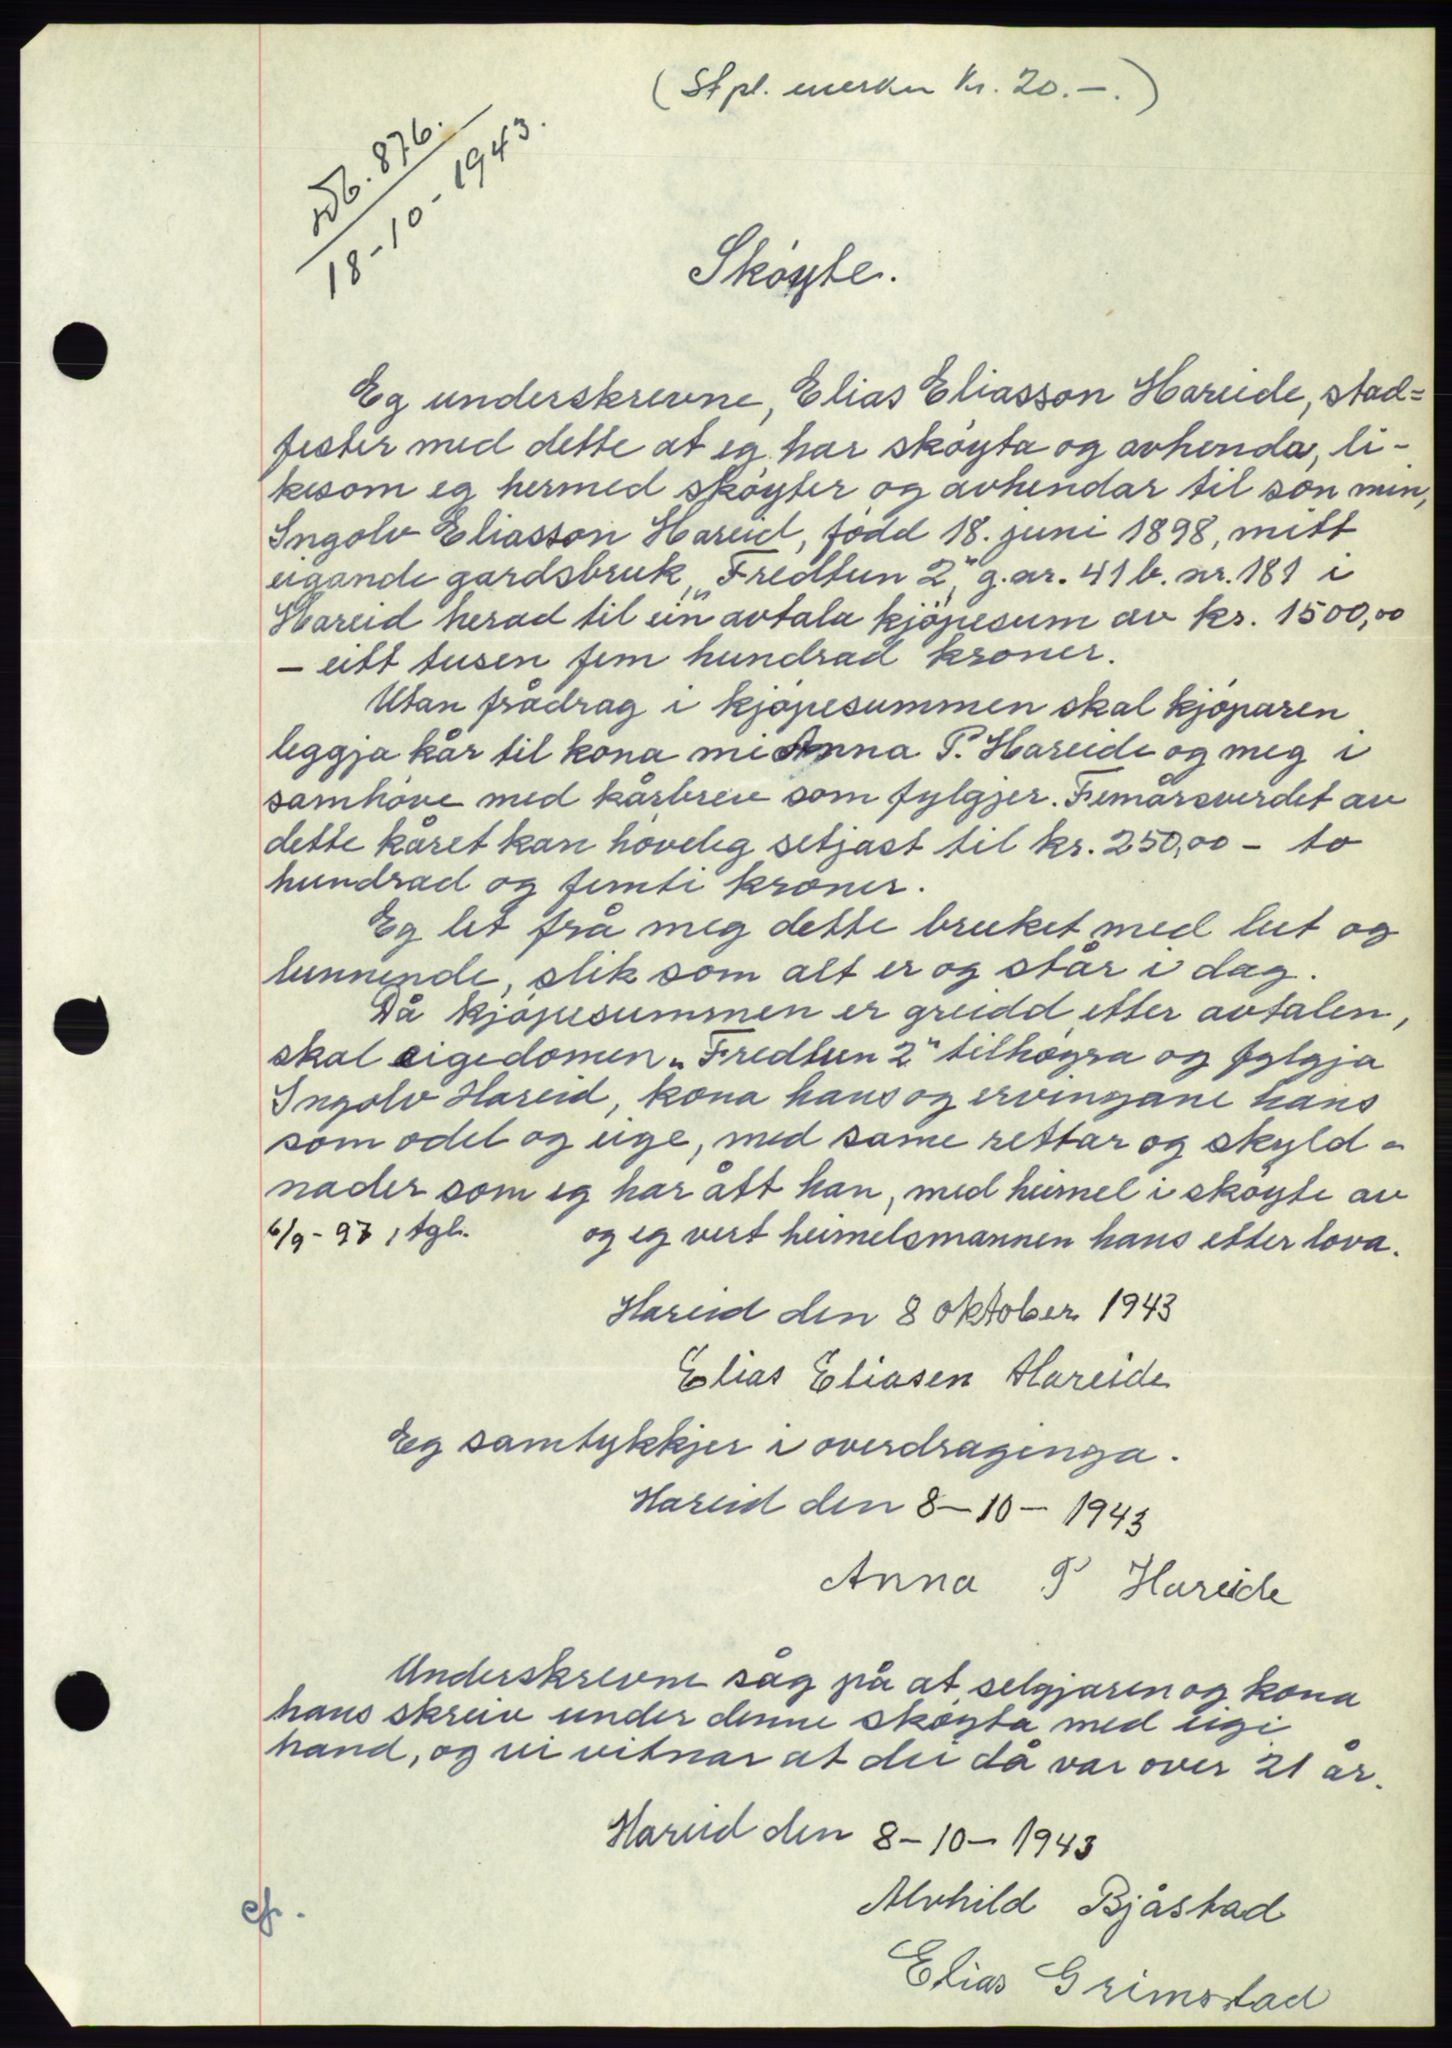 (Stpl. merker Kr. 20.–.)
Db. 876.
18-10-1943.
Skøyte.
Eg underskrevne, Elias Eliasson Hareide, stad=
fester med dette at eg har skøyta og avhenda, li-
kesom eg hermed skøyter og avhendar til son min,
Ingolv Eliasson Hareid, fødd 18. juni 1898, mitt
eigande gardsbruk „Fredtun 2“, g.nr. 41 b. nr. 181 i
Hareid herad til ein avtala kjøpesum av kr. 1500,00
– eitt tusen fem hundrad kroner.
Utan frådrag i kjøpesummen skal kjøparen
leggja kår til kona mi Anna P. Hareide og meg i
samhøve med kårbrev som fylgjer. Femårsverdet av
dette kåret kan høveleg setjast til kr. 250,00 – to
hundrad og femti kroner.
Eg let frå meg dette bruket med lut og
lunnende, slik som alt er og står i dag.
Då kjøpesummen er greidd etter avtalen,
skal eigedomen „Fredtun 2“ tilhøyra og fylgja
Ingolv Hareid, kona hans og ervingane hans
som odel og eige, med same rettar og skyld-
nader som eg har ått han, med heimel i skøyte av
6/9-97, tgl. og eg vert heimelsmannen hans etter lova.
Hareid den 8 oktober 1943
Elias Eliasen Hareide
Eg samtykkjer i overdraginga.
Hareid den 8-10-1943
Anna P Hareide
Underskrevne såg på at seljaren og kona
hans skreiv under denne skøyta med eigi
hand, og vi vitnar at dei då var over 21 år.
Hareid den 8-10-1943
Alvhild Bjåstad
Elias Grimstad